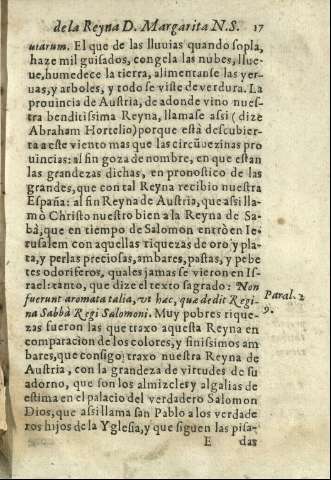 de la Reyna D. Margarita N.S. 17
utarum. El que de las lluuias quando sopla,
haze mil guisados, congela las nubes, llue-
ue, humedece la tierra, alimentanse las yer-
uas, y arboles, y todo se viste de verdura. La
prouincia de Austria, de adonde vino nues-
tra benditissima Reyna, llamase assi (dize
Abraham Hortelio) porque està descubier-
ta a este viento mas que las circũvezinas pro
uincias: al fin goza de nombre, en que estan
las grandezas dichas, en pronostico de las
grandes, que con tal Reyna recibio nuestra
España: al fin Reyna de Austria, que assi lla-
mò Christo nuestro bien a la Reyna de Sa-
bà, que en tiempo de Salomon entrò en Ie-
rusalem con aquellas riquezas de oro, y pla-
ta, y perlas preciosas, ambares, pastas, y pebe
tes odoriferos, quales jamas se vieron en Is-
rael: tanto, que dize el texto sagrado: Non
fuerunt aromata talia, vt hæc, quæ dedit Regi-
na Sabbà Regi Salomoni. Muy pobres rique-
Paral. 2
9.
zas fueron las que traxo aquesta Reyna en
comparacion de los colores, y finissimos am
bares, que consigo traxo nuestra Reyna de
Austria, con la grandeza de virtudes de su
adorno, que son los almizcles y algalias de
estima en el palacio del verdadero Salomon
Dios, que assi llama san Pablo a los verdade
ros hijos de la Yglesia, y que siguen las pisa-
E das